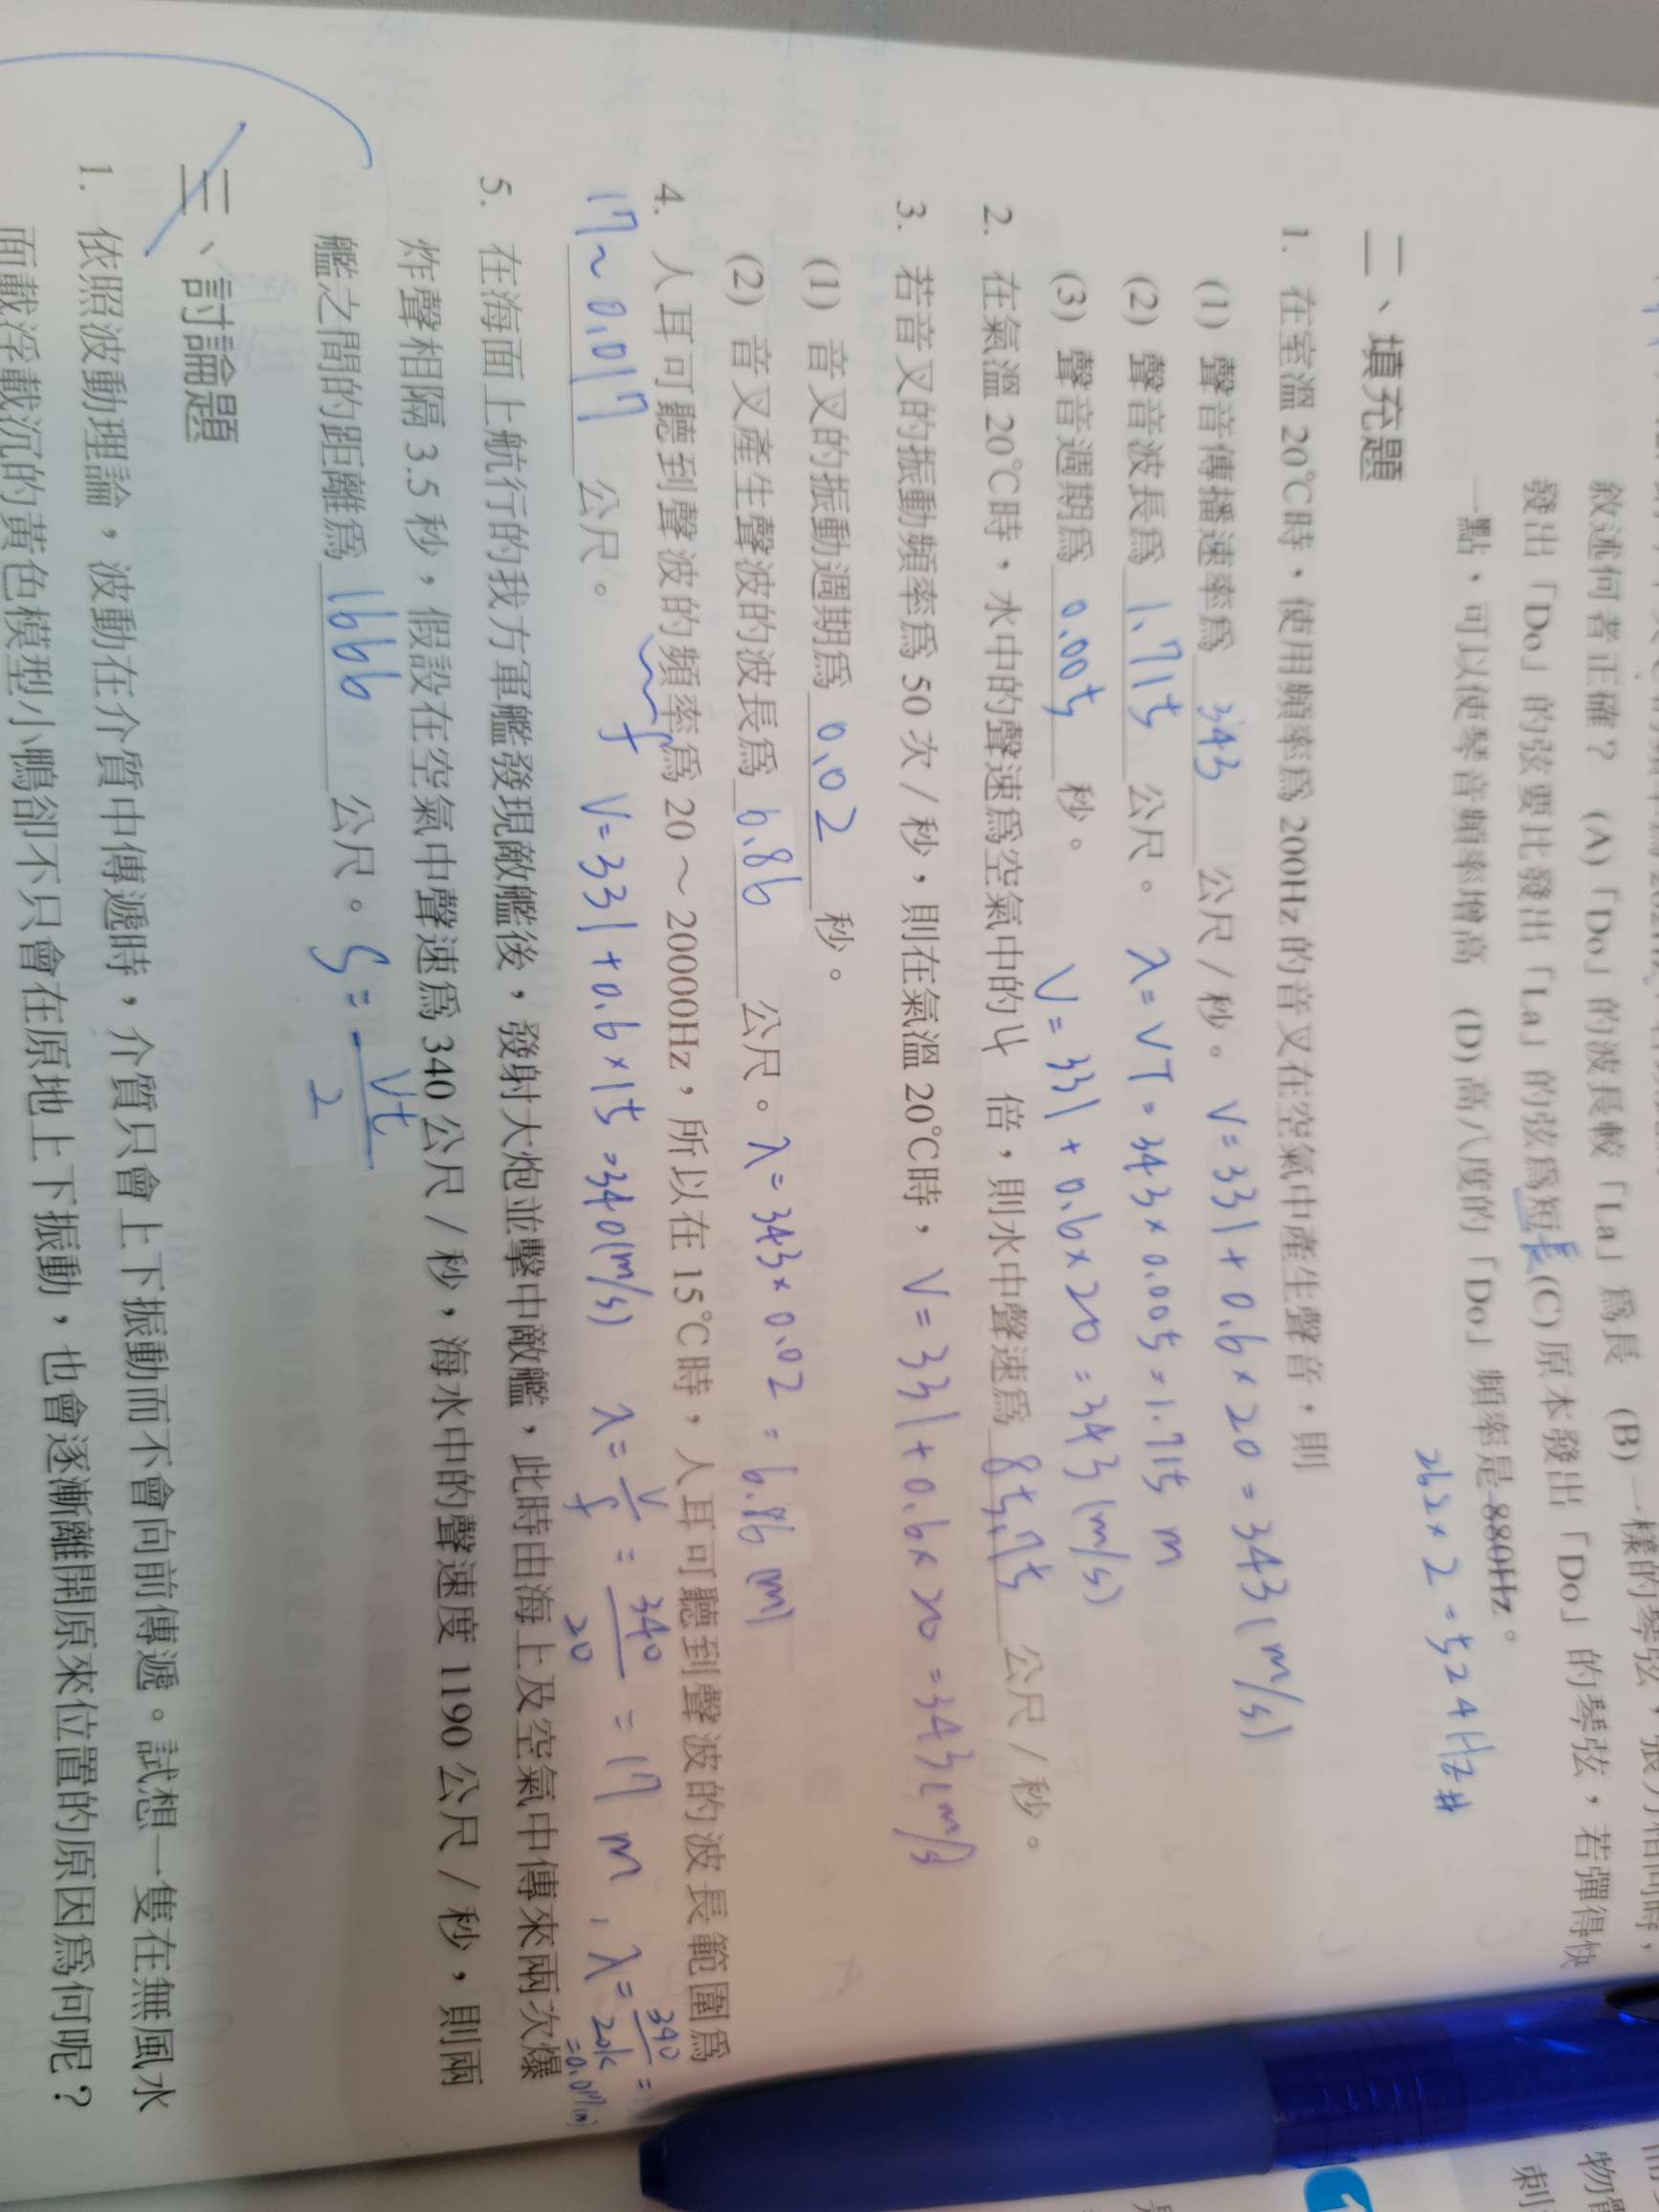 敘述何者正確？ (A)「Do」的波長較「La」為長 (B)一樣的琴弦，張力相同時，
發出「Do」的弦要比發出「La」的弦為短長(C)原本發出「Do」的琴弦，若彈得快
一點，可以使琴音頻率增高 (D)高八度的「Do」頻率是880Hz。
262×2=524Hz#
二、填充題
1. 在室溫 20℃時，使用頻率為 200Hz 的音叉在空氣中產生聲音，則
(1) 聲音傳播速率為 343 公尺/秒。 V=331+0.6×20=343(m/s)
(2) 聲音波長為 1.715 公尺。 λ=VT=343×0.005=1.715 m
(3) 聲音週期為 0.005 秒。 V=331+0.6×20=343(m/s)
2. 在氣溫 20℃時，水中的聲速為空氣中的 倍，則水中聲速為 85.75 公尺/秒。
3. 若音叉的振動頻率為 50 次/秒，則在氣溫 20℃時， V=331+0.6×20=343(m/s)
(1) 音叉的振動週期為 0.02 秒。
(2) 音叉產生聲波的波長為 6.86 公尺。λ=343×0.02=6.86(m)
4. 人耳可聽到聲波的頻率為 20～20000Hz，所以在 15℃時，人耳可聽到聲波的波長範圍為
17~0.017 公尺。 f V=331+0.6×15=340(m/s) λ=V/f=340/20=17 m, λ=340/20k=0.017(m)
5. 在海面上航行的我方軍艦發現敵艦後，發射大炮並擊中敵艦，此時由海上及空氣中傳來兩次爆
炸聲相隔 3.5 秒，假設在空氣中聲速為 340 公尺/秒，海水中的聲速度 1190 公尺/秒，則兩
艦之間的距離為 1666 公尺。 S=Vt/2
三、討論題
1. 依照波動理論，波動在介質中傳遞時，介質只會上下振動而不會向前傳遞。試想一隻在無風水
面載浮載沉的黃色模型小鴨卻不只會在原地上下振動，也會逐漸離開原來位置的原因為何呢？